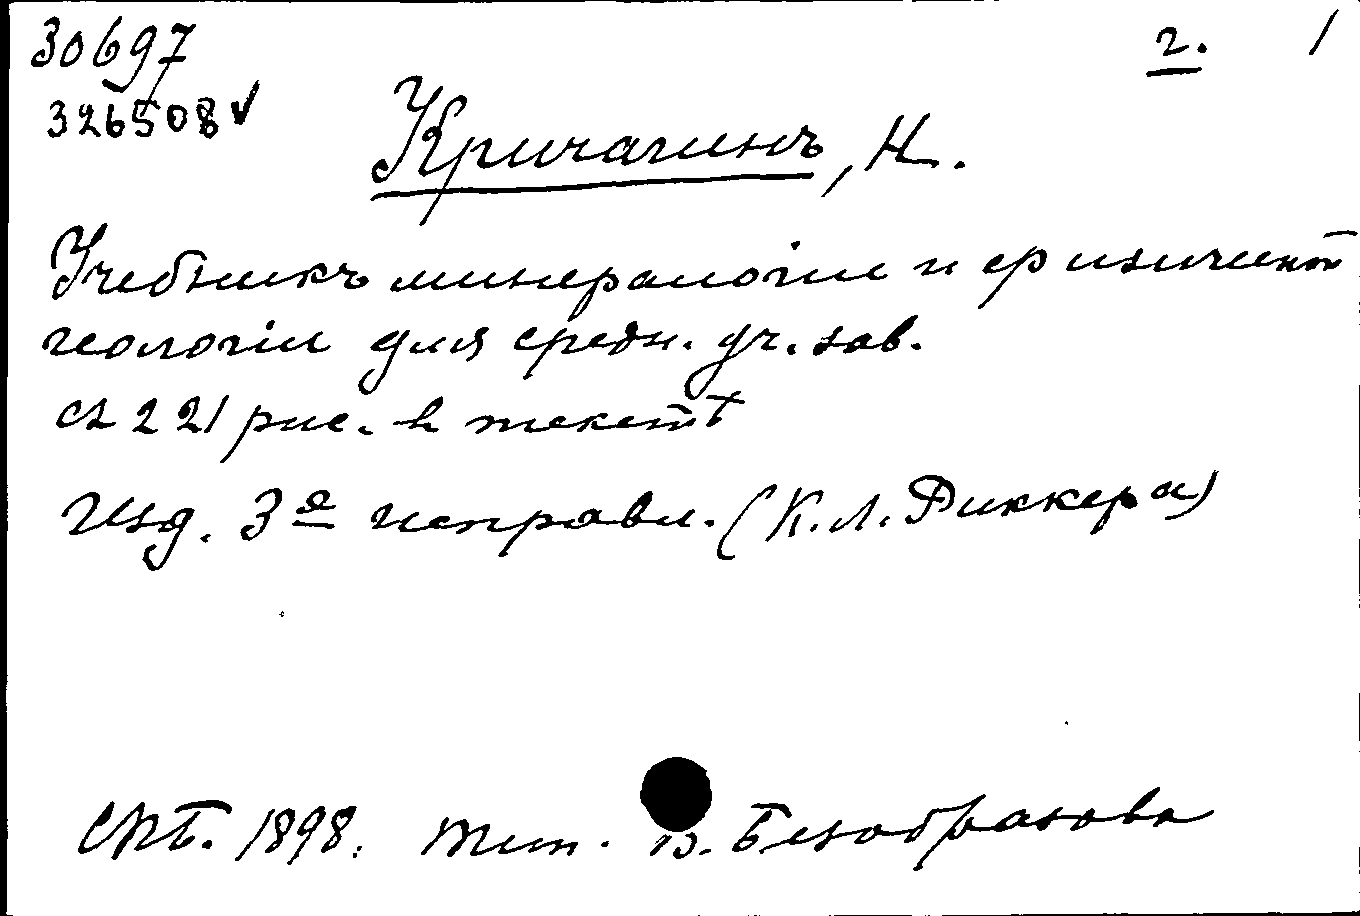 30697 г. 1
326508 ✓
Кричагинъ, Н.
Учебникъ минералогіи и физической
геологіи для средн. уч. зав.
съ 221 рис. въ текстѣ
Изд. 3е исправл. (К. Л. Риккера)
СПб. 1898. Тип. В. Безобразова